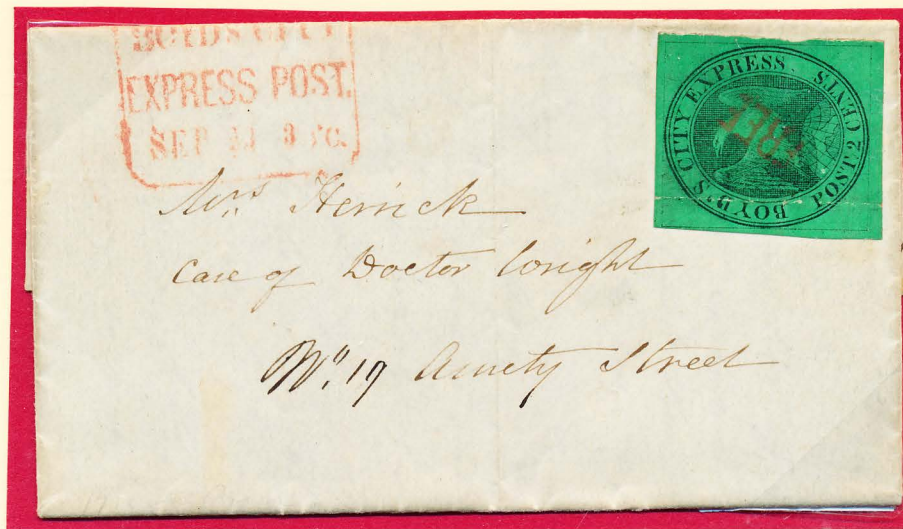 BOYD'S CITY
EXPRESS POST.
SEP
BOYD'S CITY EXPRESS POST 2 CENTS
FREE
Mrs. Herrick
Care of Doctor Wright
No. 19 Amity Street